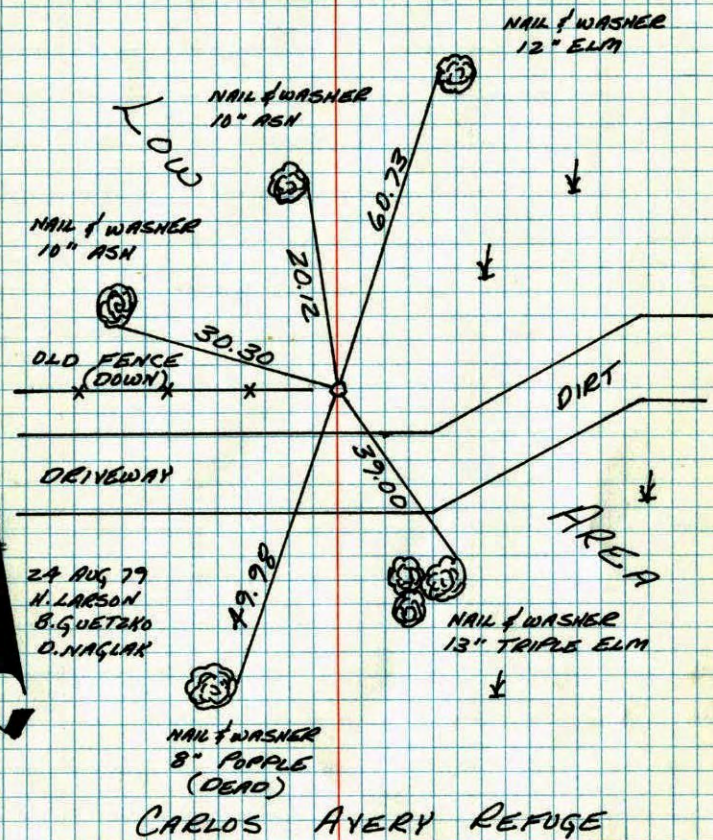 NAIL & WASHER
12" ELM
NAIL & WASHER
10" ASH
LOW
60.73
NAIL & WASHER
10" ASH
20.12
30.30
OLD FENCE
(DOWN)
DIRT
39.00
DRIVEWAY
AREA
24 AUG 79
H. LARSON
B. GUETZKO
D. NAGLAK
49.98
NAIL & WASHER
13" TRIPLE ELM
NAIL & WASHER
8" POPPLE
(DEAD)
CARLOS AVERY REFUGE